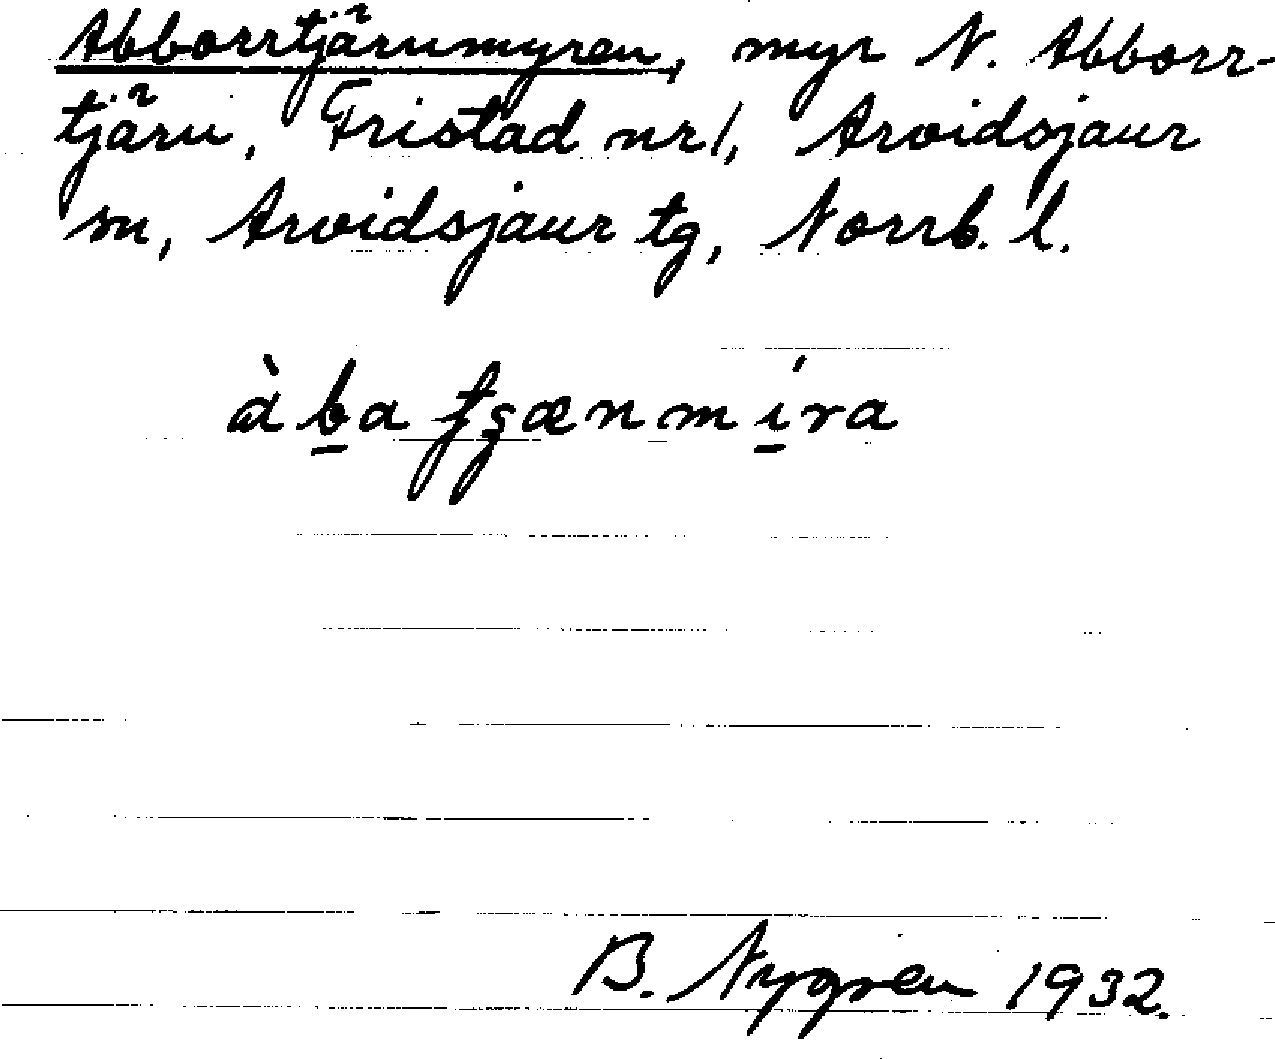 Abborrtjärnmyren, myr N. Abborr-
tjärn, Fristad nr 1, Arvidsjaur
sn, Arvidsjaur tg, Norrb. l.
B. Nygren 1932.